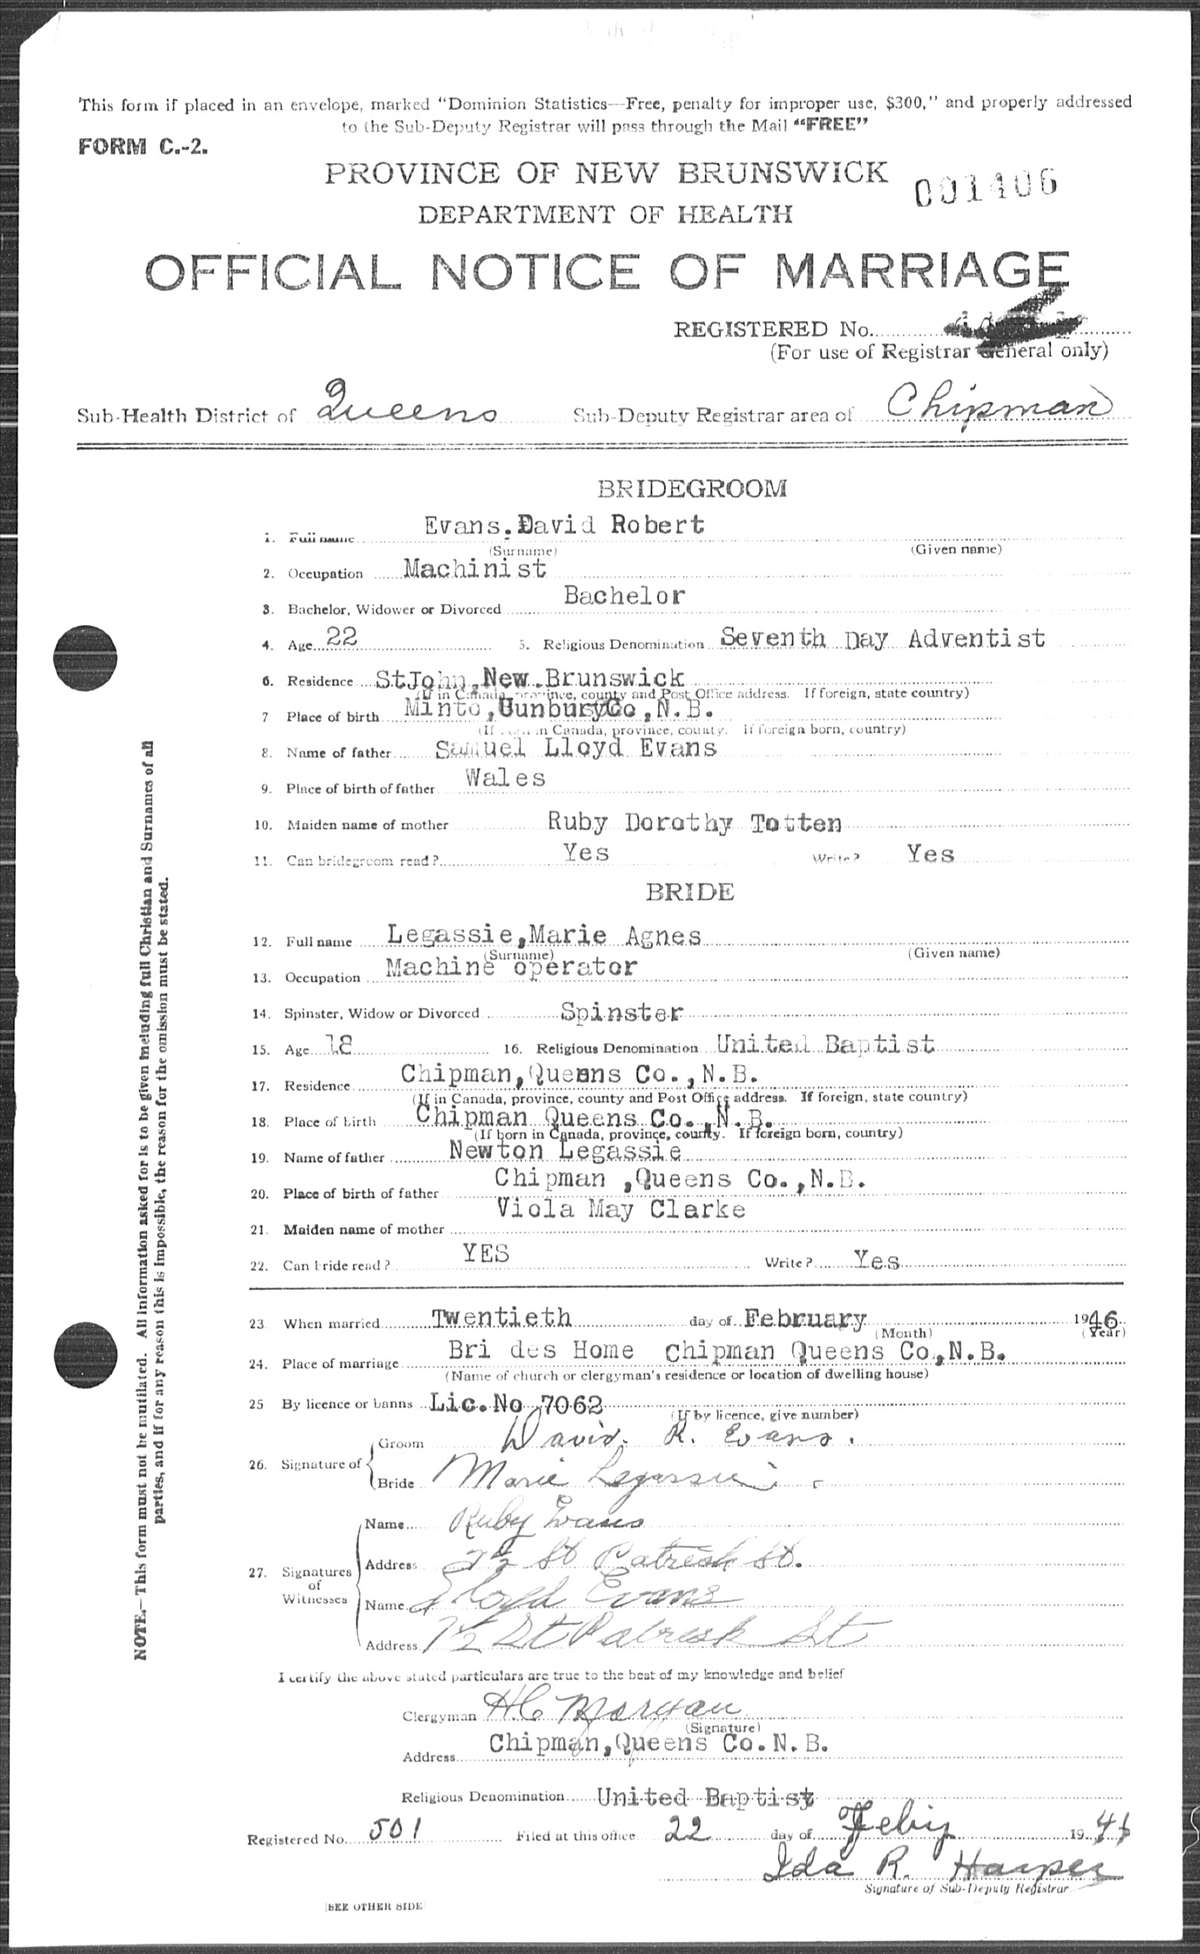 This form if placed in an envelope, marked "Dominion Statistics—Free, penalty for improper use, $300," and properly addressed
to the Sub-Deputy Registrar will pass through the Mail "FREE"
FORM C.-2.
PROVINCE OF NEW BRUNSWICK
001406
DEPARTMENT OF HEALTH
OFFICIAL NOTICE OF MARRIAGE
REGISTERED No.
(For use of Registrar General only)
Sub-Health District of Queens Sub-Deputy Registrar area of Chipman
BRIDEGROOM
1. Full name Evans.David Robert
(Surname) (Given name)
2. Occupation Machinist
3. Bachelor, Widower or Divorced Bachelor
4. Age 22 5. Religious Denomination Seventh Day Adventist
6. Residence StJohn,New.Brunswick
(If in Canada, province, county and Post Office address. If foreign, state country)
7 Place of birth Minto,SunburyCo,N.B.
(If born in Canada, province, county. If foreign born, country)
8. Name of father Samuel Lloyd Evans
9. Place of birth of father Wales
10. Maiden name of mother Ruby Dorothy Totten
11. Can bridegroom read? Yes Write? Yes
BRIDE
12. Full name Legassie,Marie Agnes
(Surname) (Given name)
13. Occupation Machine operator
14. Spinster, Widow or Divorced Spinster
15. Age 18 16. Religious Denomination United Baptist
17. Residence Chipman,Queens Co.,N.B.
(If in Canada, province, county and Post Office address. If foreign, state country)
18. Place of birth Chipman Queens Co.,N.B.
(If born in Canada, province, county. If foreign born, country)
19. Name of father Newton Legassie
20. Place of birth of father Chipman ,Queens Co.,N.B.
21. Maiden name of mother Viola May Clarke
22. Can bride read? YES Write? Yes
23 When married Twentieth day of February 1946
(Month) (Year)
24. Place of marriage Bri des Home Chipman Queens Co,N.B.
(Name of church or clergyman's residence or location of dwelling house)
25 By licence or banns Lic.No 7062
(If by licence, give number)
26. Signature of Groom David. R. Evans.
Bride Marie Legassie
27. Signatures of Witnesses
Name Ruby Evans
Address 7½ St Patrick St.
Name Lloyd Evans
Address 7½ St Patrick St
I certify the above stated particulars are true to the best of my knowledge and belief
Clergyman HC Morgan
(Signature)
Address Chipman,Queens Co.N.B.
Religious Denomination United Baptist
Registered No. 501 Filed at this office 22 day of Feby 1946
Ida R. Harper
Signature of Sub-Deputy Registrar
(SEE OTHER SIDE)
NOTE.—This form must not be mutilated. All information asked for is to be given including full Christian and Surnames of all
parties, and if for any reason this is impossible, the reason for the omission must be stated.